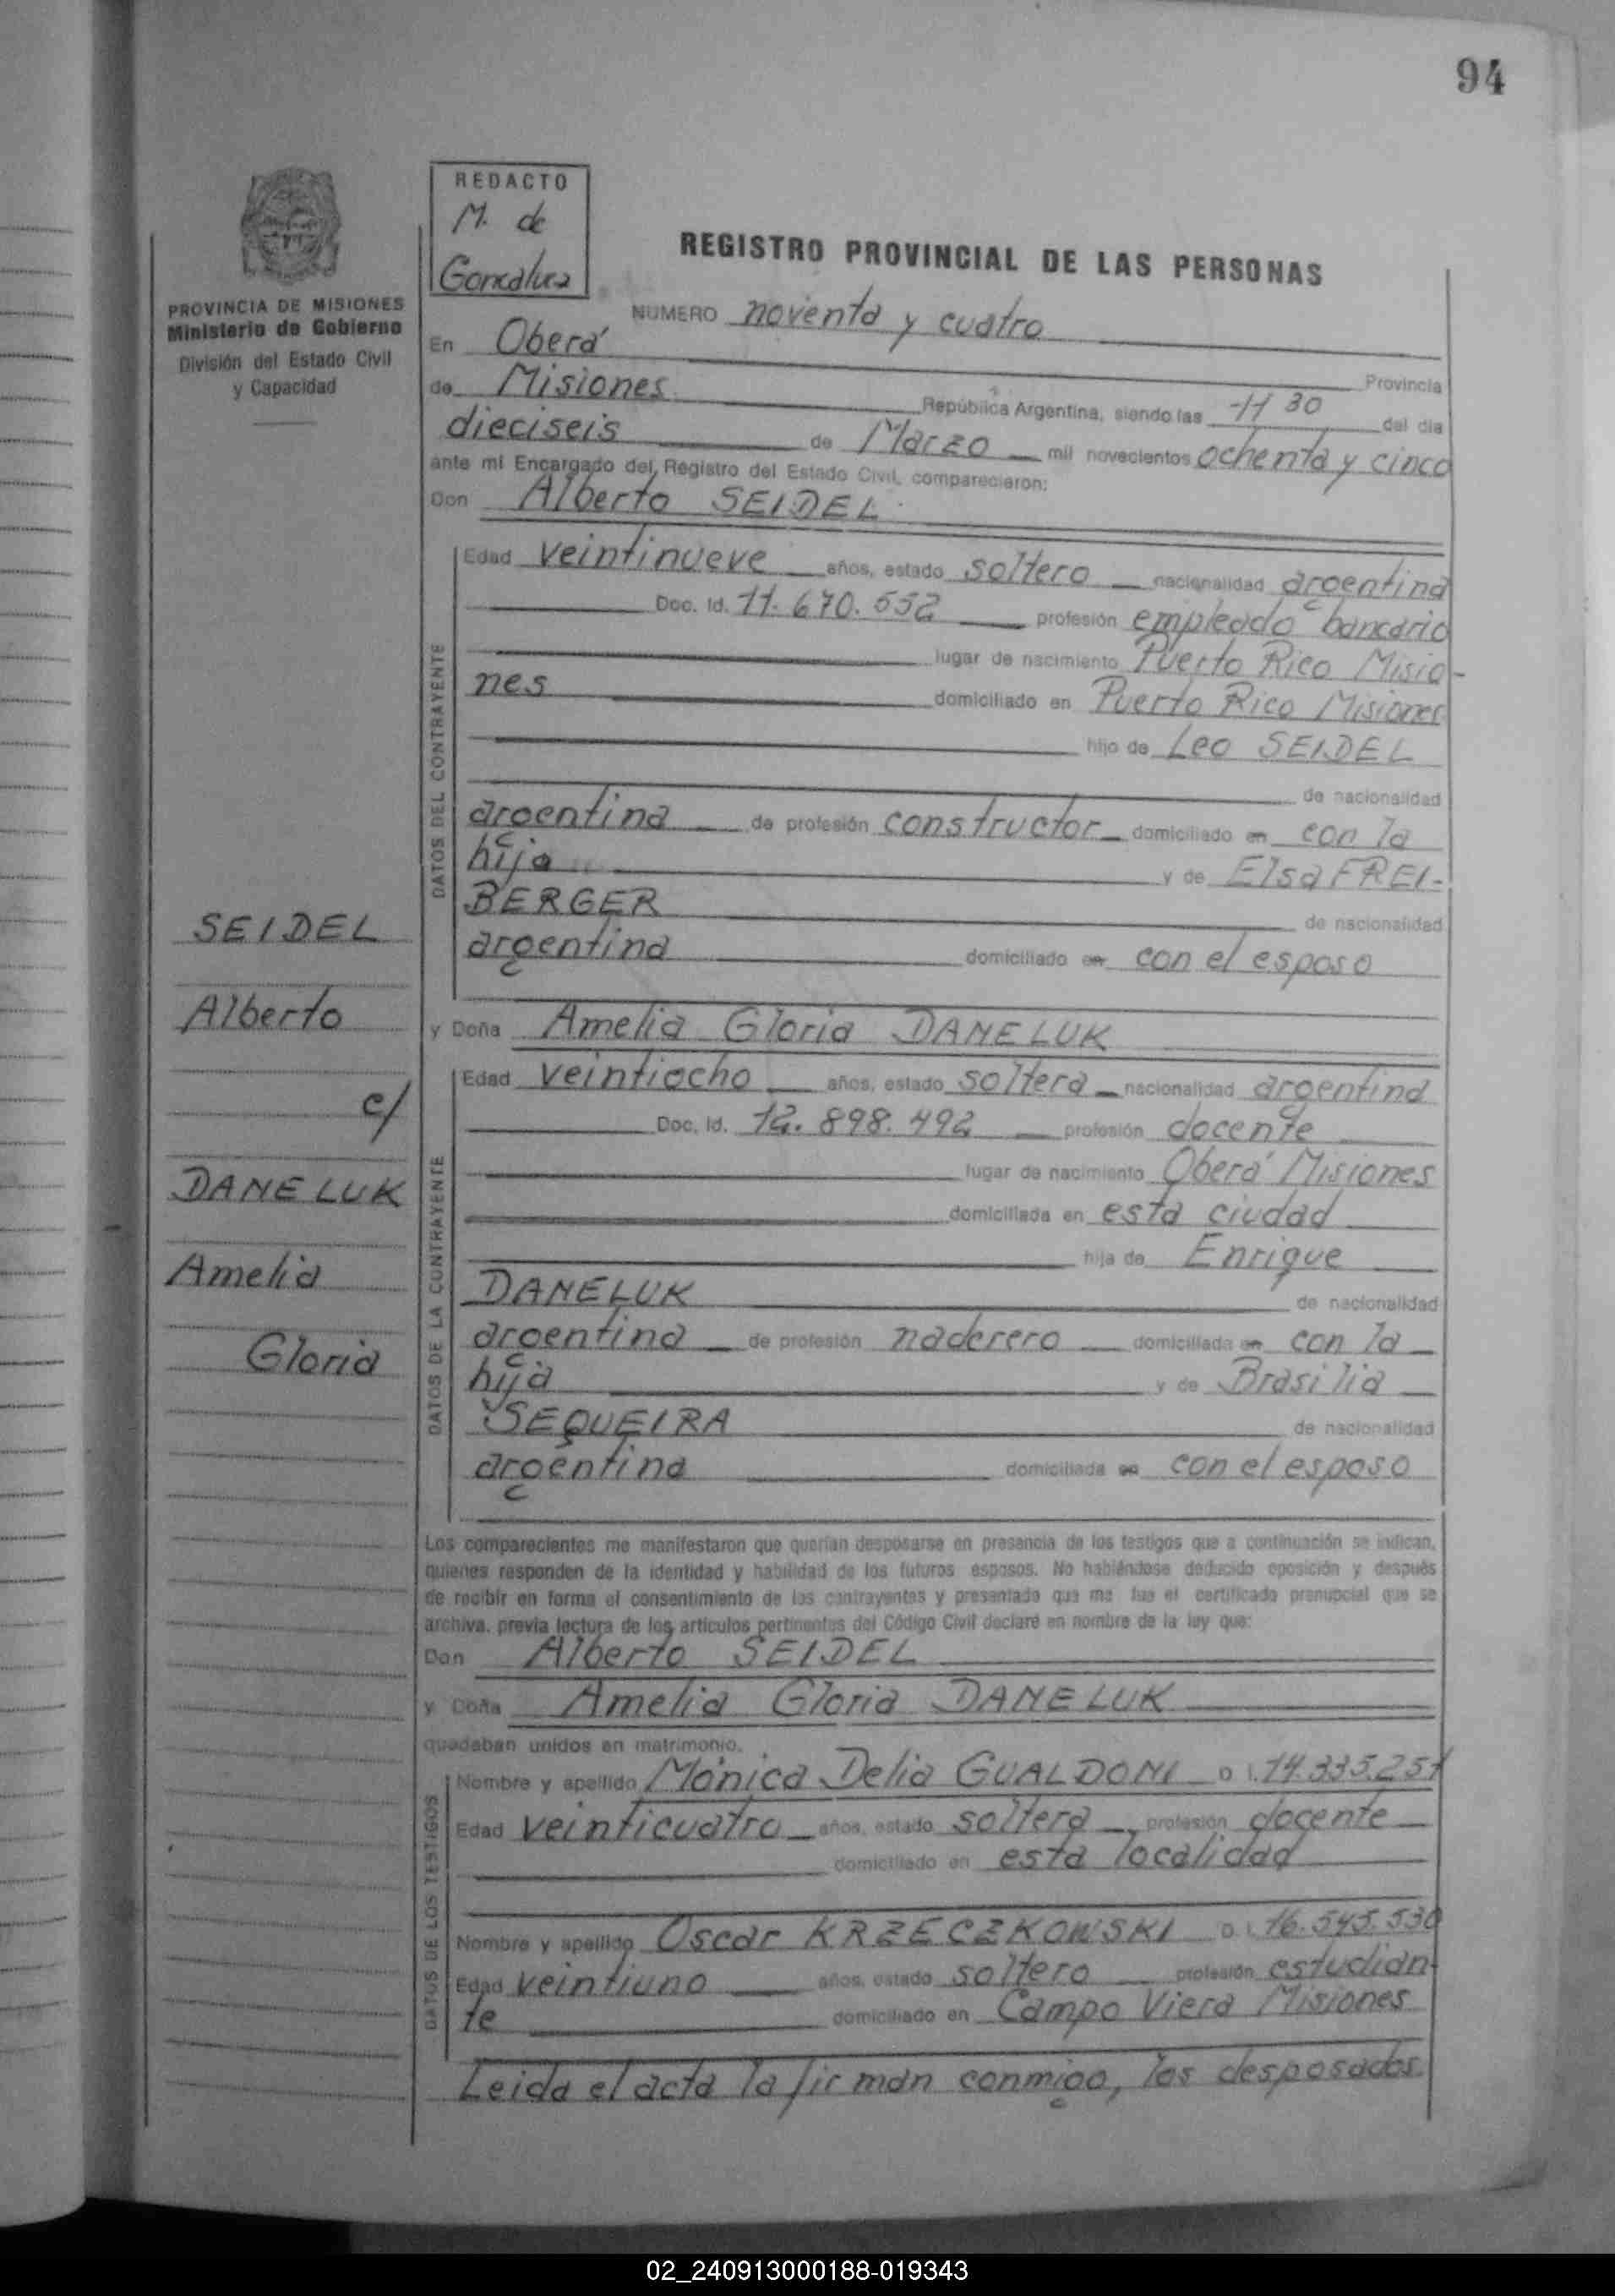 94
REDACTO
M. de
REGISTRO PROVINCIAL DE LAS PERSONAS
PROVINCIA DE MISIONES
Ministerio de Gobierno
División del Estado Civil
y Capacidad
NUMERO noventa y cuatro
En Oberá Provincia
de Misiones República Argentina, siendo las 11 30 del dia
dieciseis de Marzo mil novecientos ochenta y cinco
ante mi Encargado del Registro del Estado Civil, comparecieron:
Don Alberto SEIDEL
DATOS DEL CONTRAYENTE
Edad veintinueve años, estado soltero nacionalidad argentina
Doc. Id. 11.670.552 profesión empleado bancario
lugar de nacimiento Puerto Rico Misio-
nes domiciliado en Puerto Rico Misiones
hijo de Leo SEIDEL
de nacionalidad
argentina de profesión constructor domiciliado en con la
hija y de Elsa FREI-
BERGER de nacionalidad
argentina domiciliado en con el esposo
SEIDEL
Alberto
c/
DANELUK
Amelia
Gloria
y Doña Amelia Gloria DANELUK
DATOS DE LA CONTRAYENTE
Edad veintiocho años, estado soltera nacionalidad argentina
Doc. Id. 12.898.492 profesión docente
lugar de nacimiento Oberá Misiones
domiciliada en esta ciudad
hija de Enrique
DANELUK de nacionalidad
argentina de profesión naderero domiciliada en con la
hija y de Brasilia
SEQUEIRA de nacionalidad
argentina domiciliada en con el esposo
Los comparecientes me manifestaron que querían desposarse en presencia de los testigos que a continuación se indican,
quienes responden de la identidad y habilidad de los futuros esposos. No habiéndose deducido oposición y después
de recibir en forma el consentimiento de los contrayentes y presentado que me fue el certificado prenupcial que se
archiva, previa lectura de los artículos pertinentes del Código Civil declaré en nombre de la ley que:
Don Alberto SEIDEL
y Doña Amelia Gloria DANELUK
quedaban unidos en matrimonio.
DATOS DE LOS TESTIGOS
Nombre y apellido Mónica Delia GUALDONI D.I. 14.335.251
Edad veinticuatro años, estado soltera profesión docente
domiciliado en esta localidad
Nombre y apellido Oscar KRZECZKOWSKI D.I. 16.545.530
Edad veintiuno años, estado soltero profesión estudian
te domiciliado en Campo Viera Misiones
Leida el acta la firman conmigo, los desposados
02_240913000188-019343